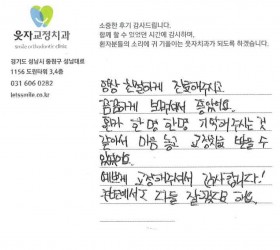 웃자교정치과
smile orthodontic clinic
경기도 성남시 중원구 성남대로
1156 도원타워 3,4층
031 606 0282
letssmile.co.kr
소중한 후기 감사드립니다.
함께 할 수 있었던 시간에 감사하며,
환자분들의 소리에 귀 기울이는 웃자치과가 되도록 하겠습니다.
항상 친절하게 진료해주시고
꼼꼼하게 봐주셔서 좋았어요.
환자 한명 한명 기억해주시는 것
같아서 마음 놓고 교정을 받을 수
있었어요.
예쁘게 교정해주셔서 감사합니다!
주변에서 다들 잘됐다고 해요.